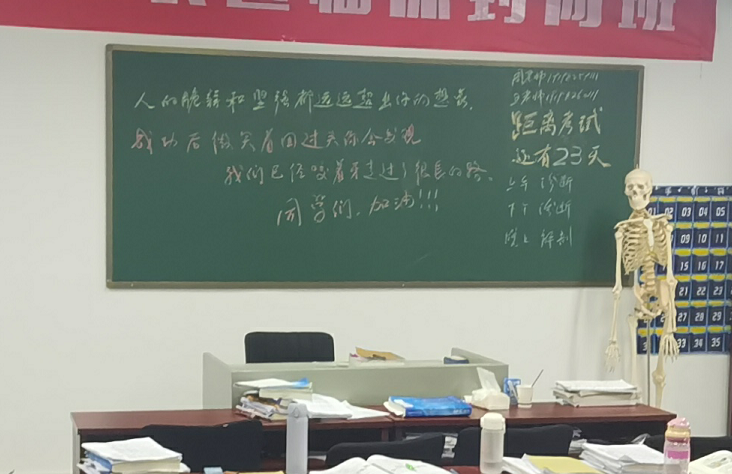 医临床封闭班
人的脆弱和坚强都远远超出你的想象.
成功后微笑着回过头你会发现
我们已经咬着牙走过了很长的路.
同学们,加油!!!
周老师
距离考试
还有23天
上午 诊断
下午 诊断
晚上
02 03 04 05
09 10 11
15 16 17
21 22 23
27 28 29
33 34 35